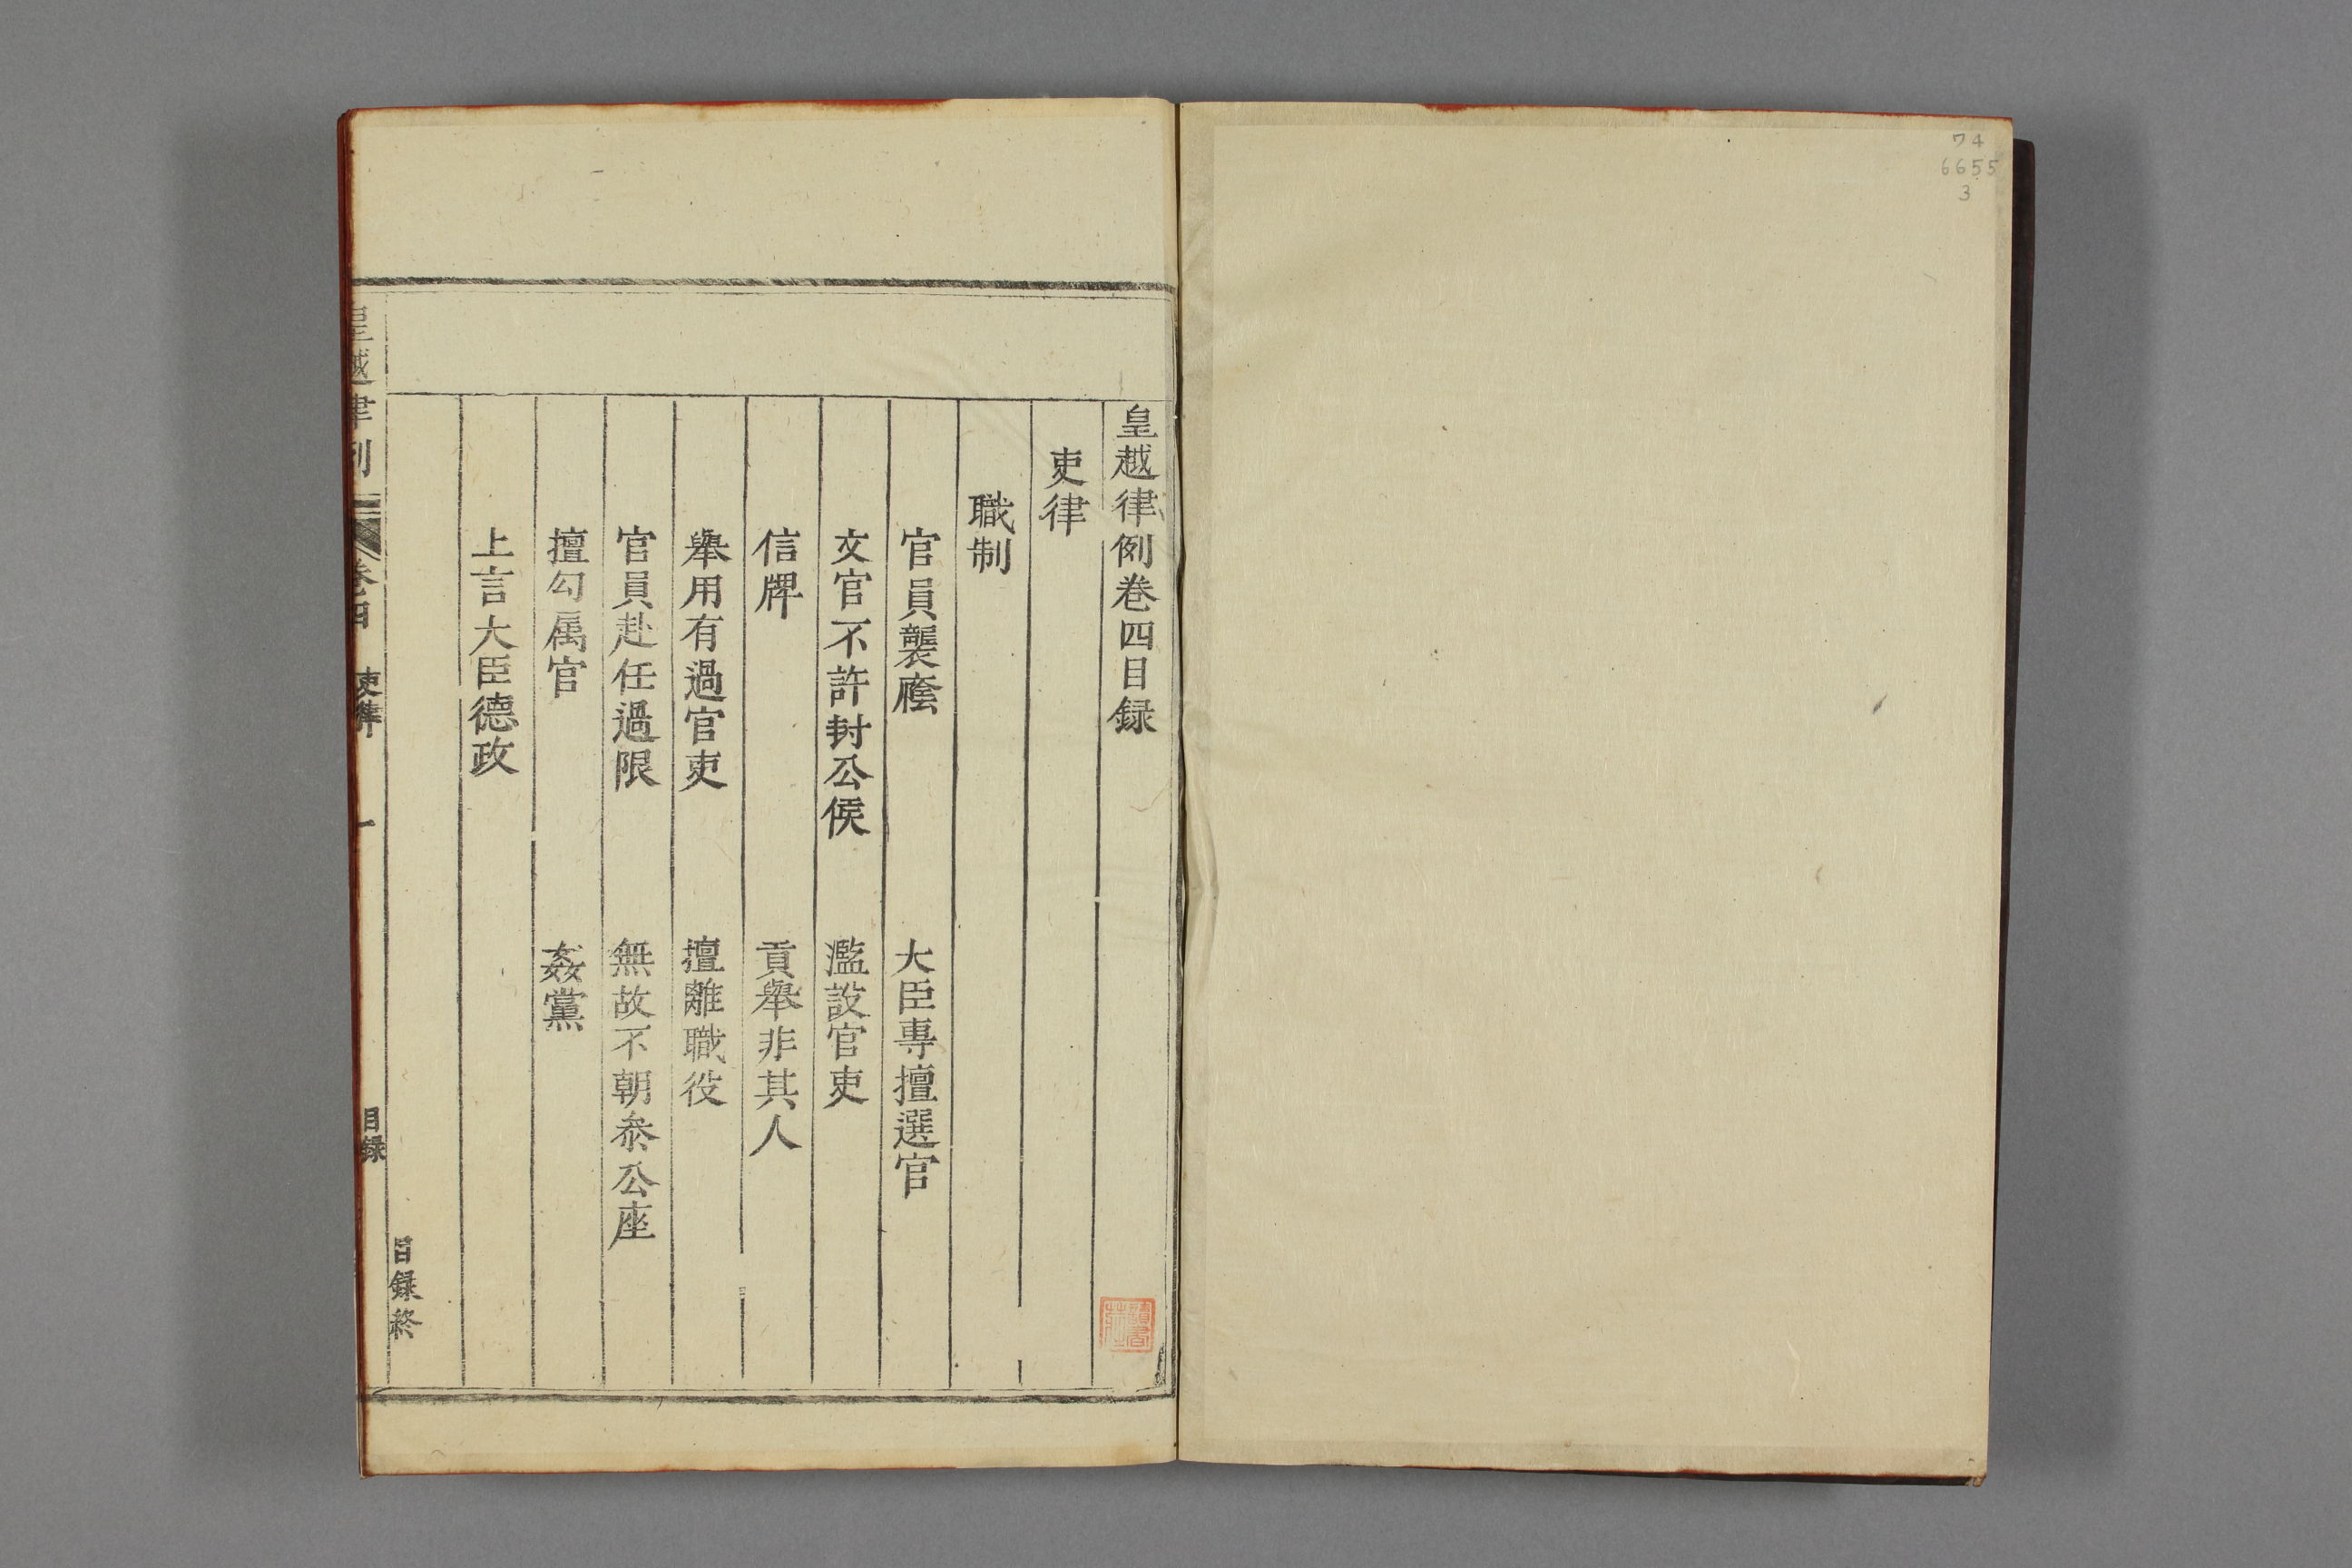 74
6655
3
皇越律例巻四目録
吏律
職制
官員襲廕
大臣專擅選官
文官不許封公侯
濫設官吏
信牌
貢舉非其人
舉用有過官吏
擅離職役
官員赴任過限
無故不朝叅公座
擅勾属官
姦黨
上言大臣德政
目録終
皇越律例
卷四
吏律
一
目録